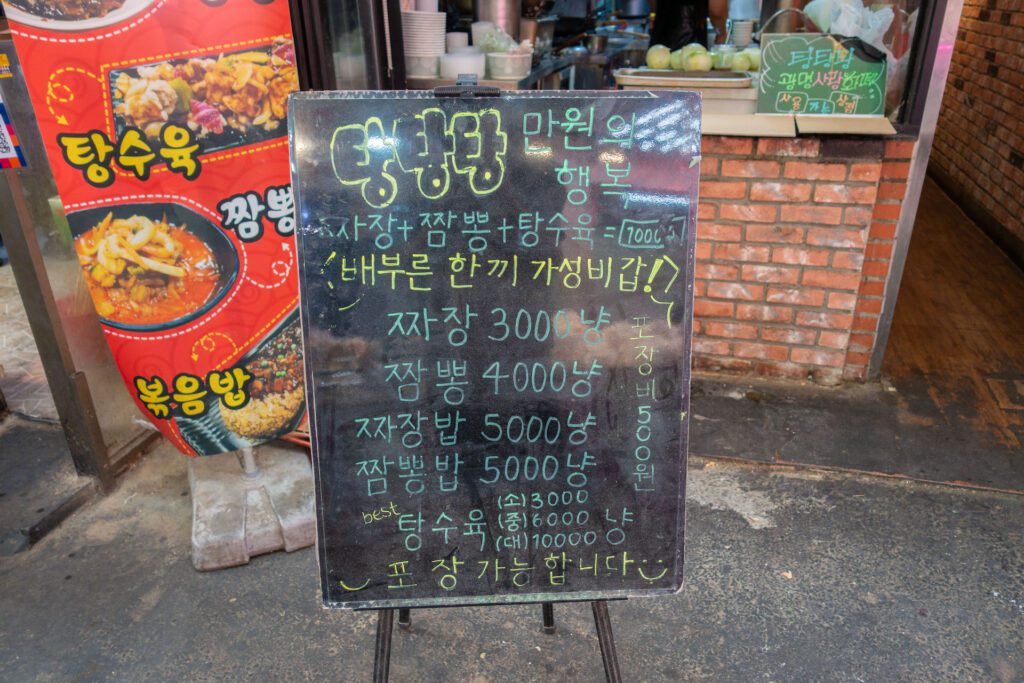 탕수육
짬뽕
볶음밥
만원의
행복
짜장+짬뽕+탕수육=
배부른 한끼 가성비갑!
짜장 3000냥
짬뽕 4000냥
짜장밥 5000냥
짬뽕밥 5000냥
best 탕수육 (소)3000
(중)6000 냥
(대)10000
포장가능합니다
포장비500원